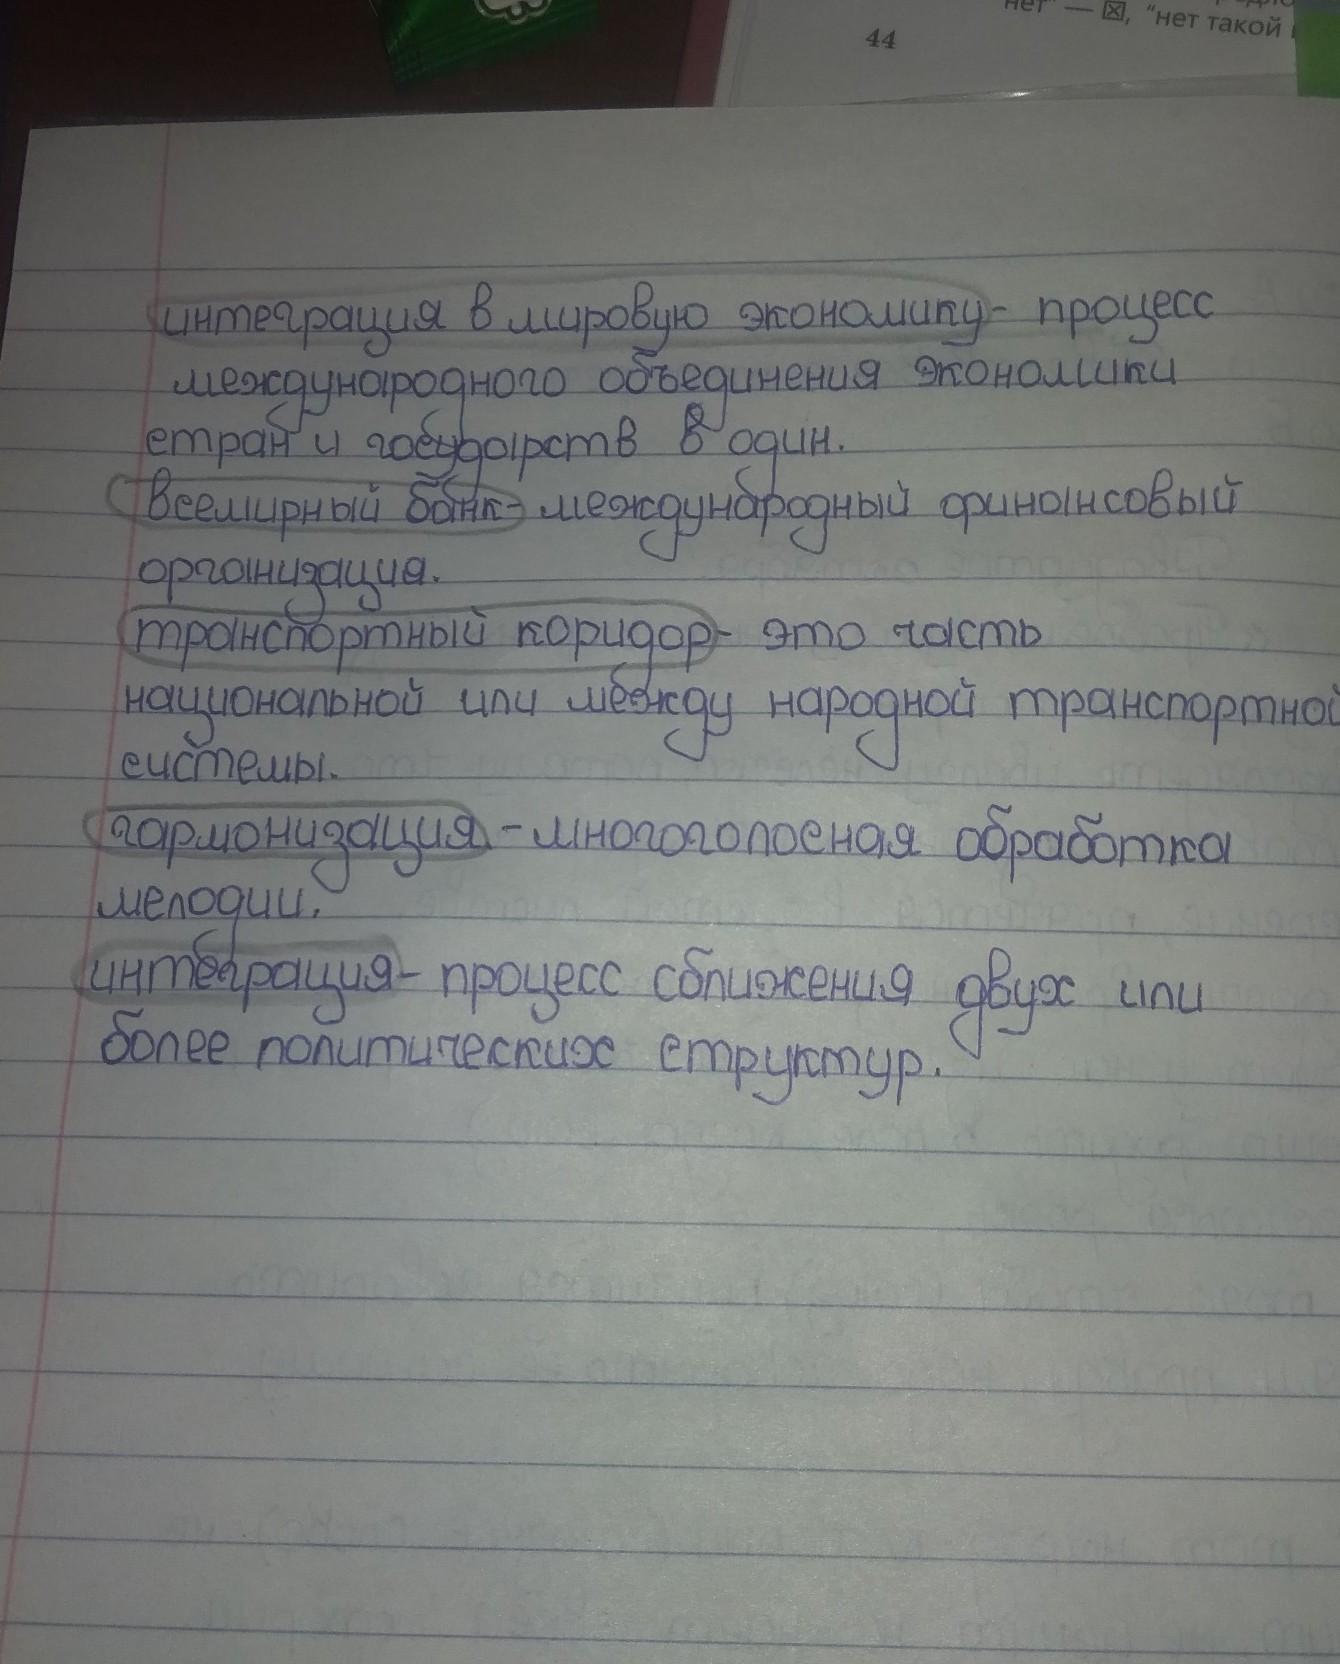 нет" — ☒, "нет такой
44
интеграция в мировую экономику- процесс
международного объединения экономики
стран и государств в один.
Всемирный банк- международный финансовый
организация.
транспортный коридор- это часть
национальной или между народной транспортной
системы.
гармонизация - многоголосная обработка
мелодии.
интеграция- процесс сближения двух или
более политических структур.